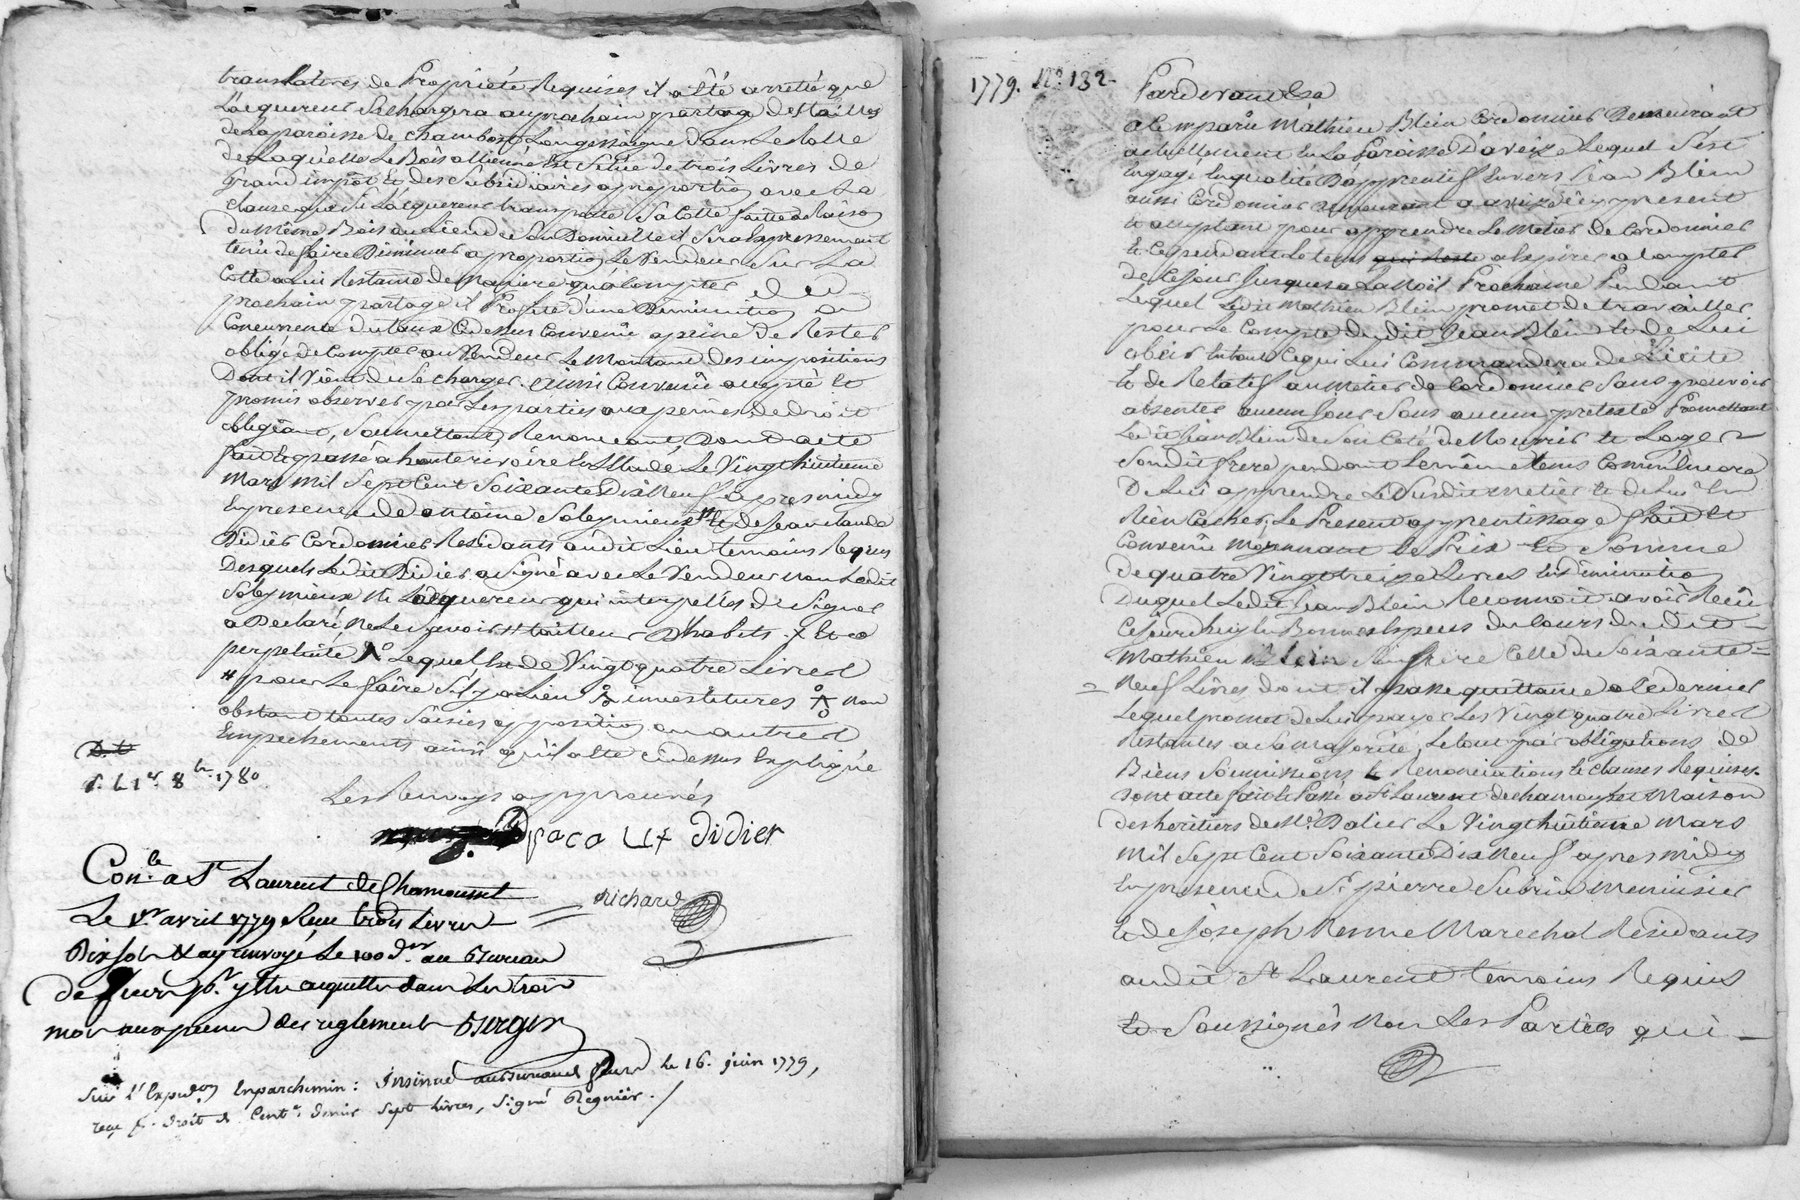 translatives de Propriété Requises il a été arretté que
L'acquereur se chargera au prochain partage des tailles
de la paroisse de Chambost Longessaigne dans Le Rolle
de Laquelle Le Bois allienné est de trois Livres de
grand impôt et des Subsidiaires a proportion avec La
clause que si Lacquereur transporte Sa Cotte faitte a Raison
du Même Bois au Lieu de Son Domicille il Sera Expressement
tenu de faire Diminuer a proportion Le Vendeur Sur La
Cotte a Lui Restante de Maniere qu'a Compter du
prochain partage il Profite d'une Diminution a
Concurrence du taux Cy dessus Convenû a peine de Rester
obligé de Compter au Vendeur Le Montant des impositions
Dont il Vient de Se charger. ainsi Convenû accepté et
promis observer par Les parties aux peines de droit
obligeant, Soumettant, Renonceant Dont acte
fait et passé a hauterivoire En Etude Le Vingthuitieme
Mars mil Sept Cent Soixante Dix Neuf apres midy
En presence de antoine Soleymieux # et de Jean claude
Didier Cordonnier Residants audit Lieu temoins Requis
Desquels Ledit Didier a Signé avec Le Vendeur non Ledit
Soleymieux Ni Lacquereur qui interpellés de Signer
a Declaré Ne Le Savoir # tailleur D'habits + et a
perpetuité Lequel est de Vingt quatre Livres
# pour Le faire S'il y a Lieu investitures non
obstant toutes Saisies opposition ou autres
Empechements ainsi qu'il a été cy dessus Expliqué
S. L 1er 8bre 1780
Les Renvoys approuvés
didier
Con.le a St Laurent de Chamousset
Le 1er avril 1779 Reçu trois Livres
Richard
Dix sols & ay envoyé Le 100 der au Bureau
de pr y etre acquitté dans Les trois
mois aux peines des reglements Berger
Sur l'Expedon En parchemin: Insinué au Bureau de le 16. juin 1779,
reçu pr. droit de Cente. denier Sept Livres, Signé Regnier.
1779. No. 132-
Pardevant &ca
a Comparu Mathieu Blein Cordonnier Demeurant
actuellement En La Paroisse D'aveize Lequel S'est
Engagé En qualité D'apprentif Envers Jean Blein
aussi Cordonnier demeurant a aveize cy present
et acceptant pour apprendre Le Metier de Cordonnier
Et Cependant Le tems a Expirer a Compter
de Ce Jour Jusques a La Noël Prochaine Pendant
Lequel Ledit Mathieu Blein promet de travailler
pour Le Compte dudit Jean Blein et de Lui
obeir En tout Ce qui Lui Commandera de Licite
et de Relatif au Métier de Cordonnier Sans pouvoir
absenter aucun Jour Sous aucun pretexte Promettant
Ledit Jean Blein de Son Coté de Nourrir et Loger
Sondit frere pendant Le même tems Comm'Encore
De Lui apprendre Le Susdit metier et de Lui En
Rien Cacher. Le Present apprentissage fait et
Convenû moyennant Le Prix et Somme
De quatre Vingt treize Livres En diminution
Duquel Ledit Jean Blein Reconnoit avoir Reçû
Cejourdhuy En Bonnes Especes du Cours dudit
Mathieu Blein Son frere Celle de Soixante =
= Neuf Livres dont il passe quittance a Ce dernier
Lequel promet de Lui payer Les Vingt quatre Livres
Restantes a Sa Majorité, Le tout par obligations de
Biens Soumissions & Renonciations et clauses Requises.
Dont acte fait et Passé a St Laurent de chamousset Maison
des heritiers de Mr. Dalier Le Vingthuitieme Mars
Mil Sept Cent Soixante Dix Neuf apres midy
En presence de Sr. pierre Subrin Menuisier
et de Joseph Renne Marechal Residants
audit St Laurent temoins Requis
et Soussignés Non Les Parties qui